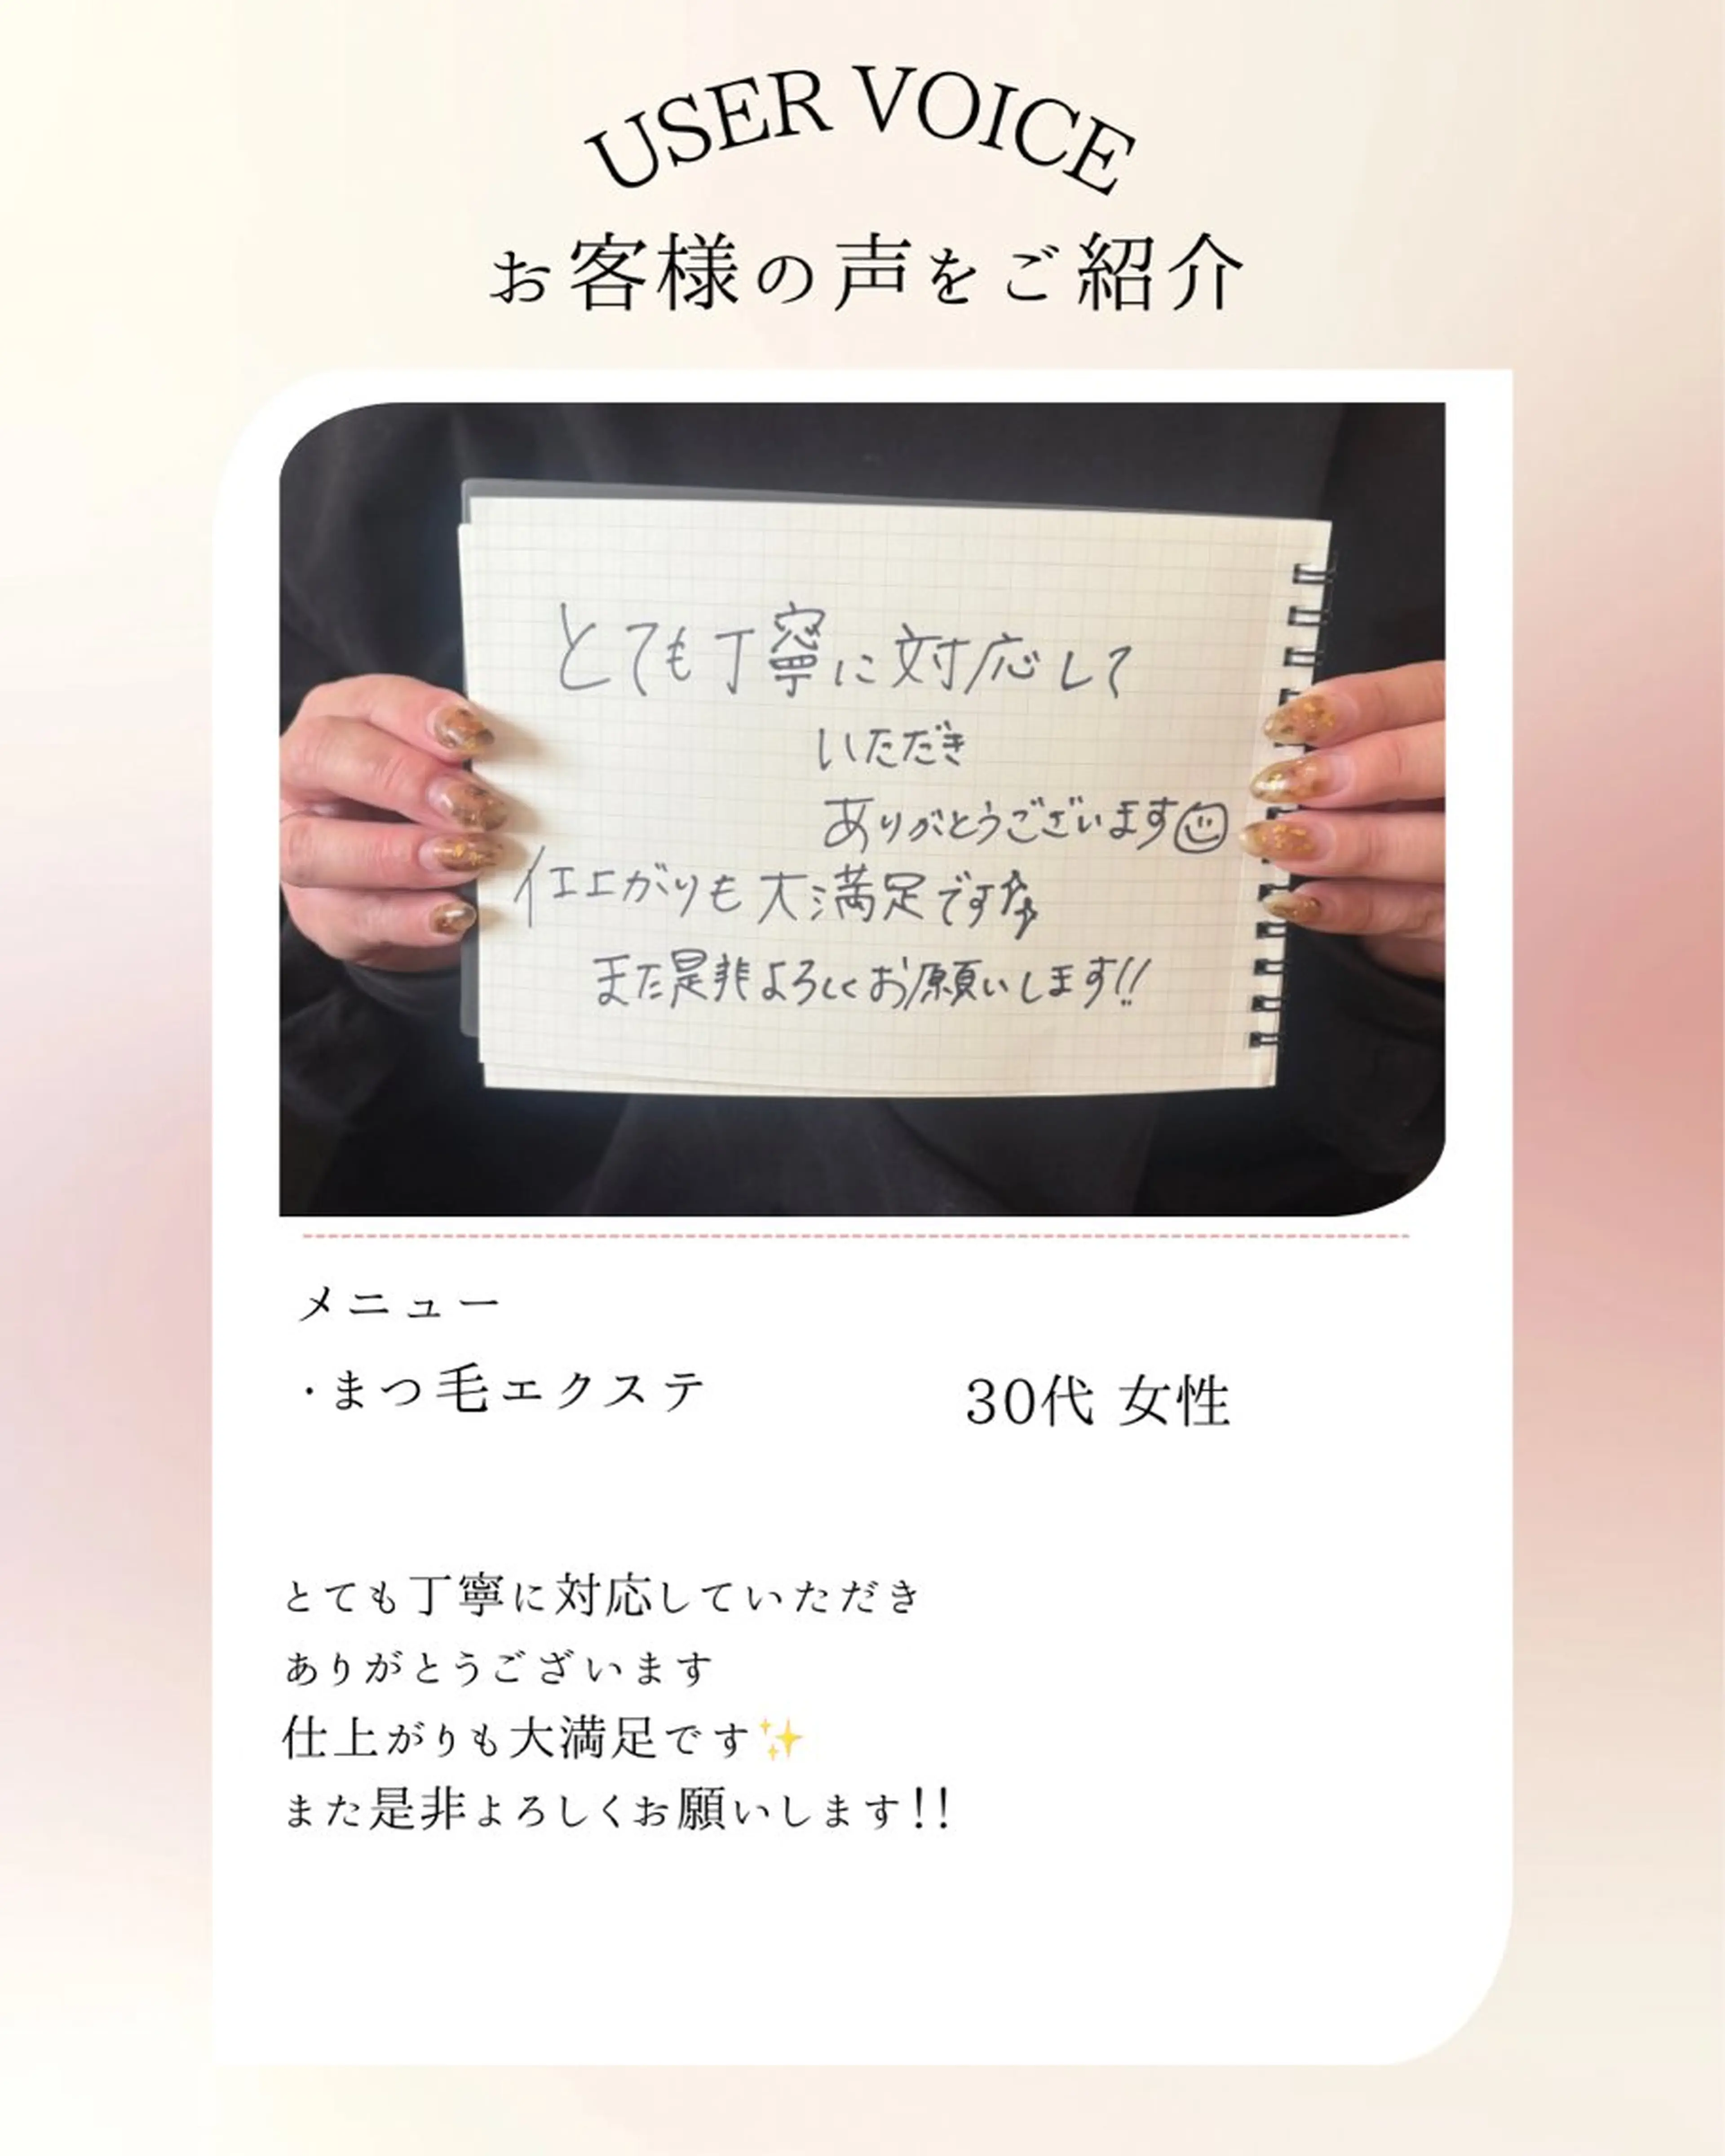 USER VOICE
お客様の声をご紹介
とても丁寧に対応して
いただき
ありがとうございます
仕上がりも大満足です
また是非よろしくお願いします!!
メニュー
・まつ毛エクステ
30代 女性
とても丁寧に対応していただき
ありがとうございます
仕上がりも大満足です✨
また是非よろしくお願いします!!